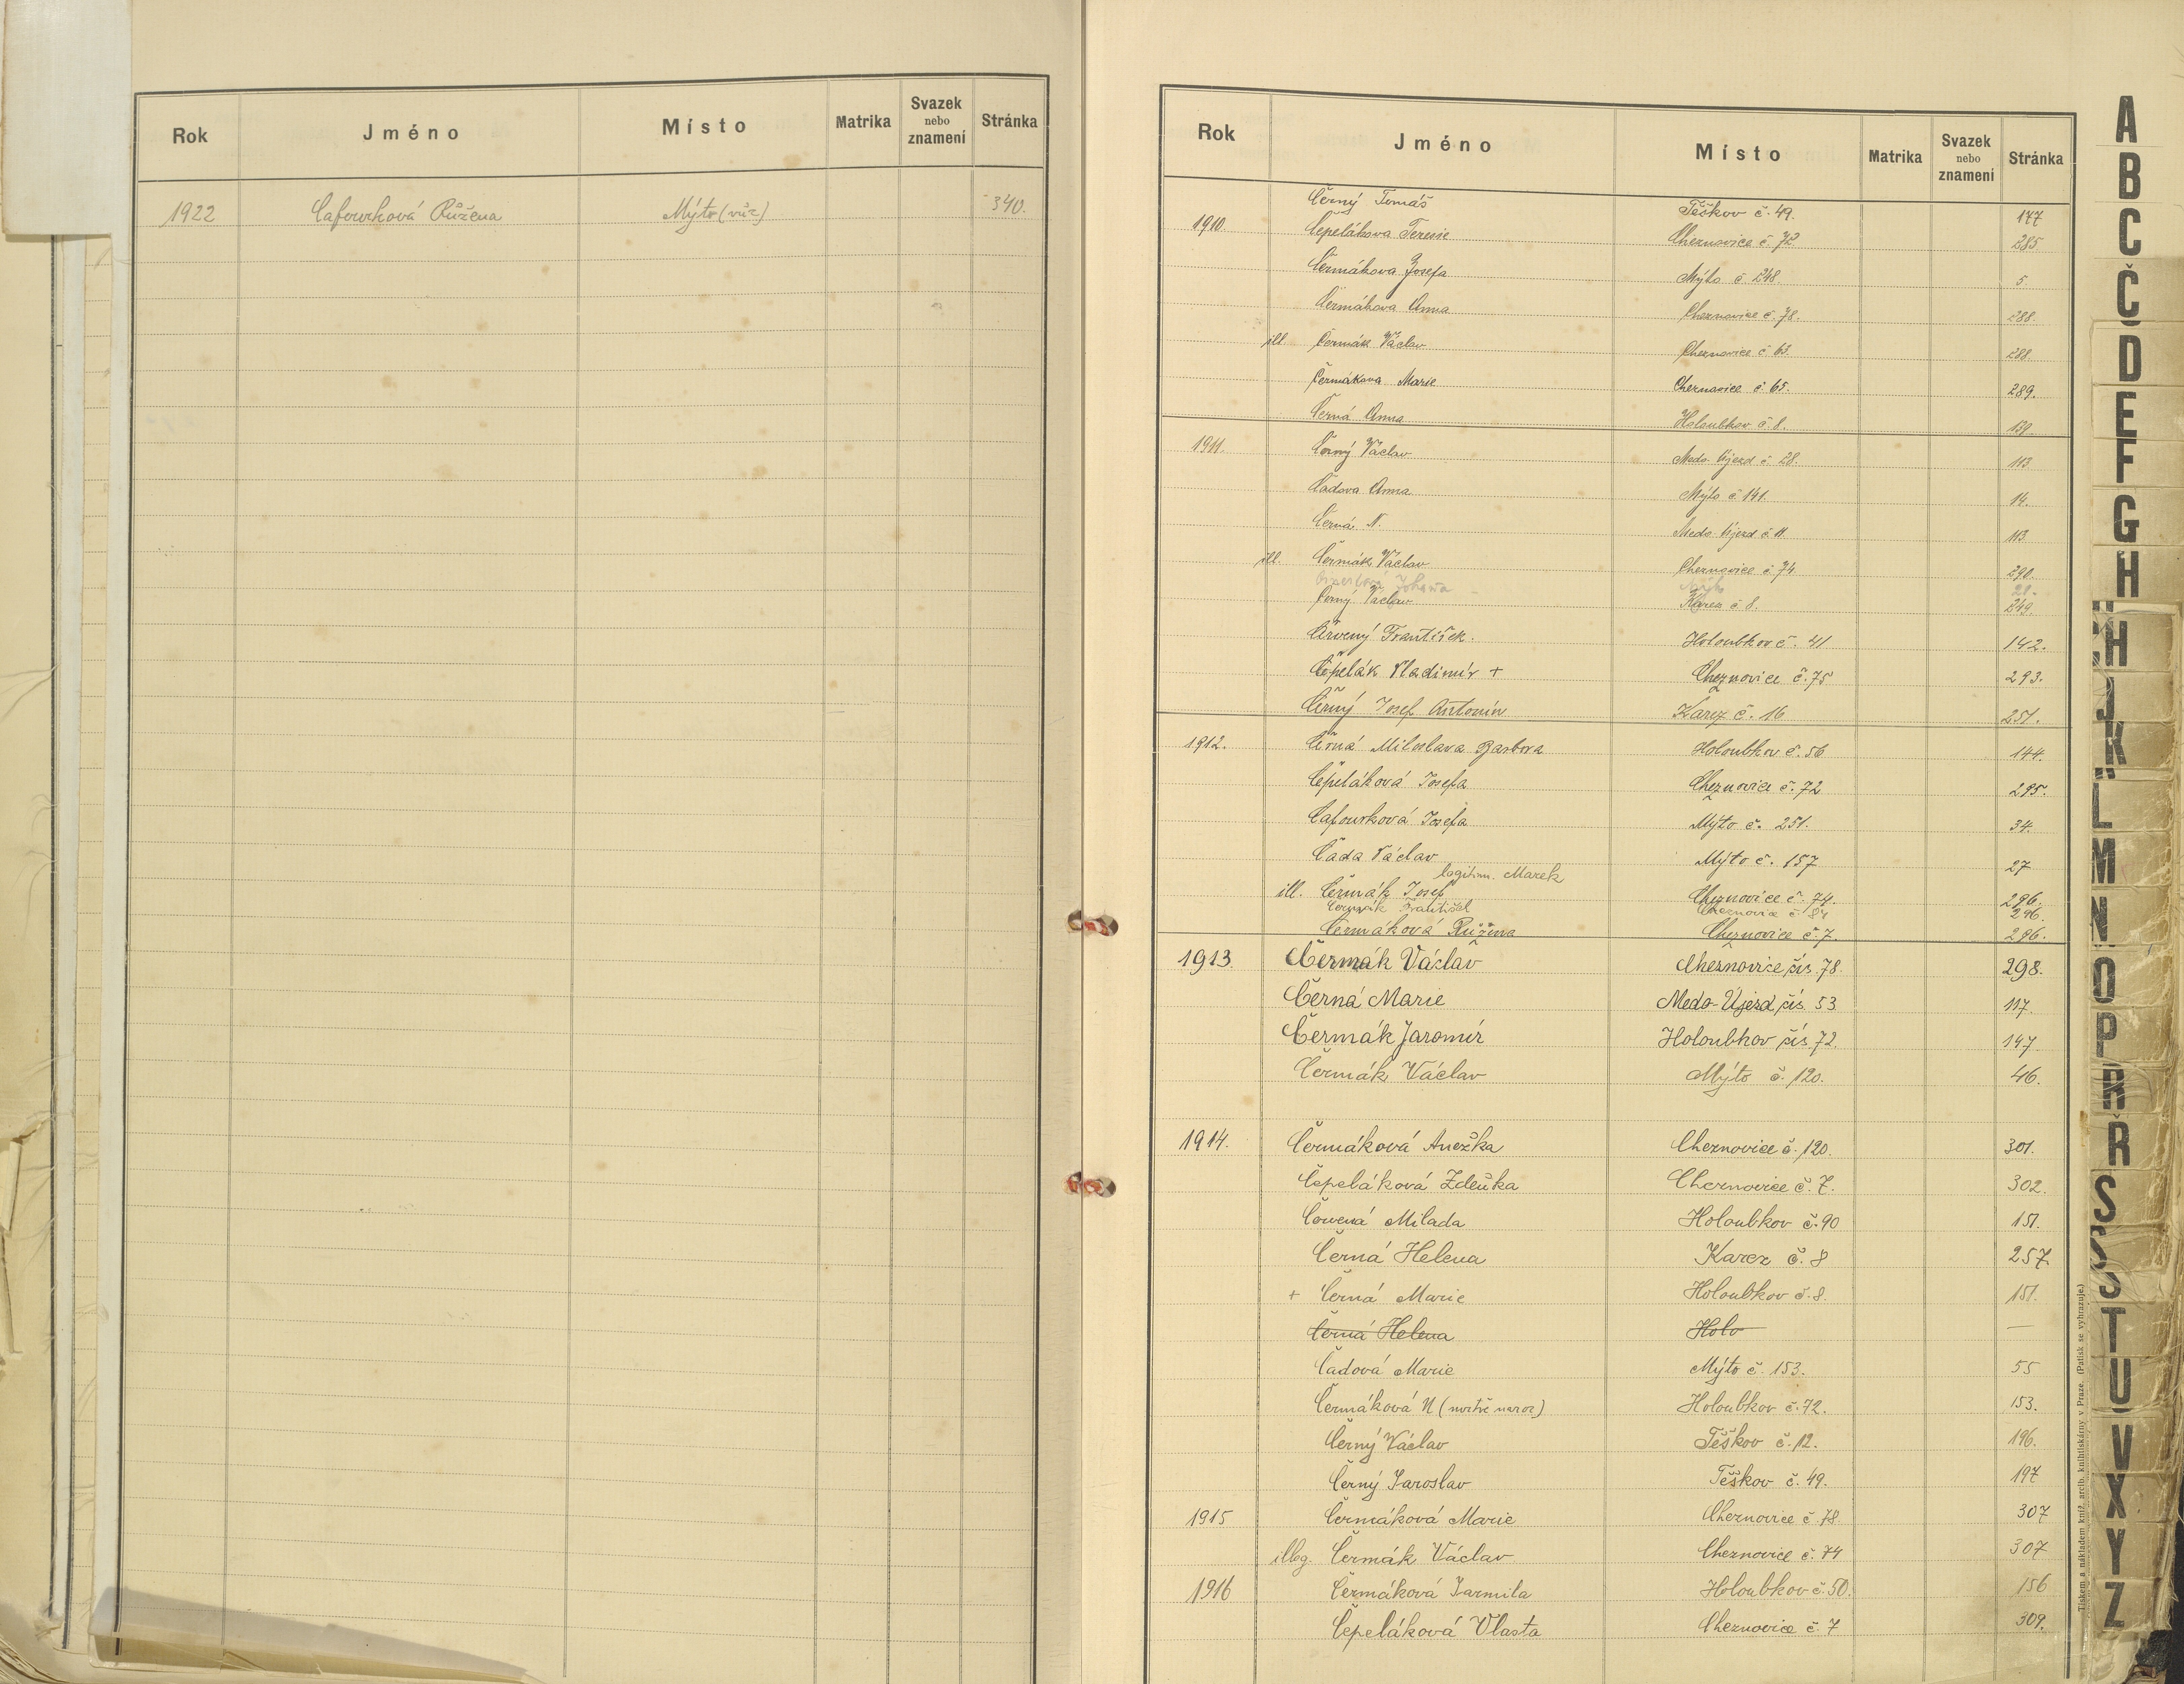 Rok Jméno Místo Matrika Svazek nebo znamení Stránka
1922 Cafourková Růžena Mýto (vůz) 340.
Rok Jméno Místo Matrika Svazek nebo znamení Stránka
Černý Tomáš Těškov č. 49. 177
1910. Čepelákova Teresie Cheznovice č. 72 285
Čermákova Josefa Mýto č 248. 5.
Čermákova Anna Cheznovice č. 78. 288.
ill. Čermák Václav Cheznovice č 63. 288.
Čermákova Marie Cheznovice č. 65. 289.
Černá Anna Holoubkov č. 8. 139.
1911. Černý Václav Medo Újezd č. 28. 113.
Čadova Anna Mýto č 141. 14.
Černá N. Medo. Újezd č 11. 113.
ill. Čermák Václav Cheznovice č. 74 290.
Johana Mýto
Černý Václav Karez č 8. 249.
Črvený František. Holoubkov č. 41 142.
Čepelák Vladimír + Cheznovice č. 75 293.
Černý Josef Antonín Karez č. 16 251.
1912. Črná Miloslava Barbora Holoubkov č. 56 144.
Čepeláková Josefa Cheznovice č. 72 295.
Cafourková Josefa Mýto č. 251. 34.
Čada Václav Mýto č. 157 27
legitim. Marek
ill. Čermák Josef Cheznovice č. 74. 296.
Čermák František Cheznovice č 84 296.
Čermáková Růžena Cheznovice č. 7. 296.
1913. Čermák Václav Cheznovice čís. 78. 298.
Černá Marie Medo-Újezd čís. 53 117.
Čermák Jaromír Holoubkov čís. 72. 147.
Čermák Václav Mýto č. 120. 46.
1914. Čermáková Anežka Cheznovice č. 120. 301.
Čepeláková Zdeňka Cheznovice č. 7. 302.
Červená Milada Holoubkov č. 90 151.
Černá Helena Karez č. 8 257.
+ Černá Marie Holoubkov č. 8. 151.
Černá Helena Holo —
Čadová Marie Mýto č. 153. 55
Čermáková N (mrtvě naroz) Holoubkov č. 72. 153.
Černý Václav Těškov č. 12. 196.
Černý Jaroslav Těškov č. 49. 197
1915 Čermáková Marie Cheznovice č 78. 307
illeg. Čermák Václav Cheznovice č. 74 307
1916 Čermáková Jarmila Holoubkov č. 50. 156
Čepeláková Vlasta Cheznovice č. 7 309.
Tiskem a nákladem kníž. arcib. knihtiskárny v Praze. (Patisk se vyhrazuje.)
A
B
C
Č
D
E
F
G
H
CH
J
K
L
M
N
O
P
R
Ř
S
Š
T
U
V
X
Y
Z